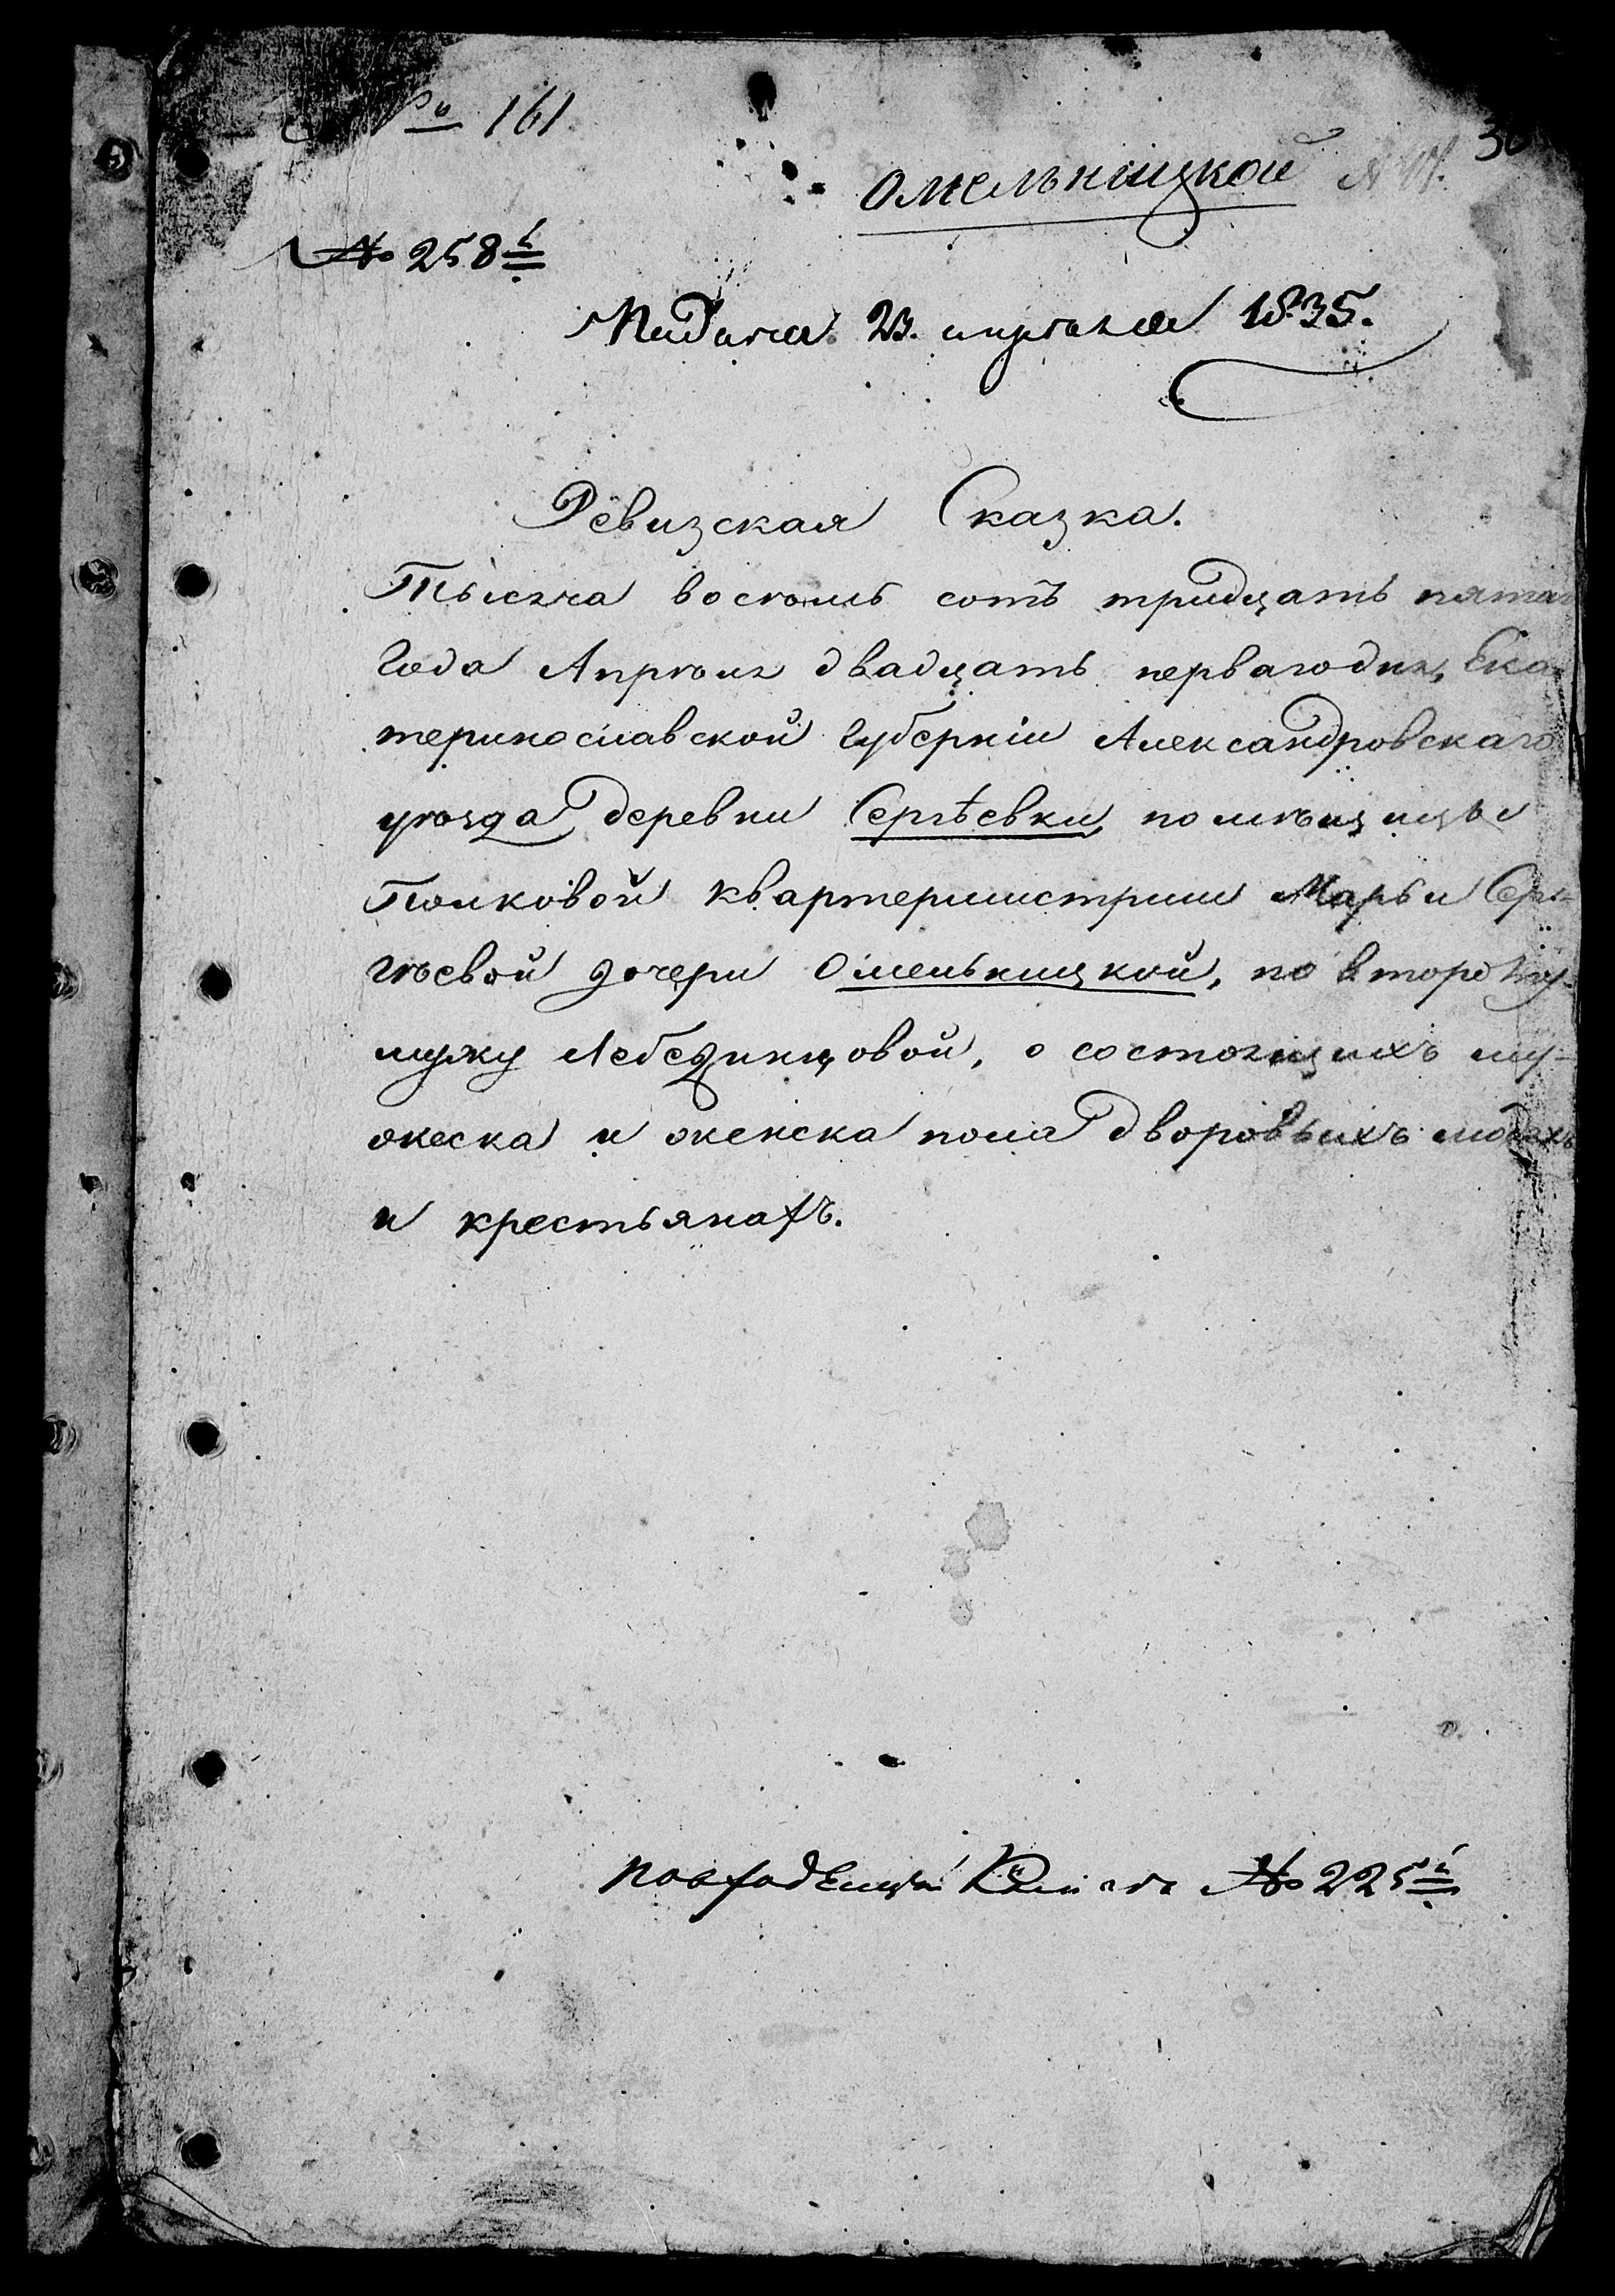 № 161
Омельницкой
№ 258й
Подана 23. апреля 1835.
Ревизская Сказка.
Тысяча восемь сотъ тридцать пятаго
года Апреля двадцать перваго дня, Ека-
теринославской Губерніи Александровскаго
уезда деревни Сергѣевки, помѣщицы
Полковой квартермистрши Марьи Серъ-
гѣевой дочери Омельницкой, по второму
мужу Лебединцовой, о состоящихъ му-
жеска и женска пола дворовыхъ людяхъ
и крестьянахъ.
по № 225й